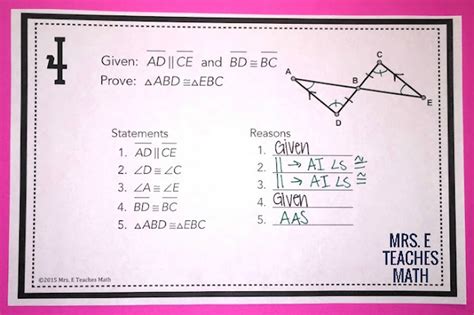 4
Given: AD || CE and BD ≅ BC
Prove: △ABD ≅ △EBC
A
B
C
D
E
Statements
1. AD || CE
2. ∠D ≅ ∠C
3. ∠A ≅ ∠E
4. BD ≅ BC
5. △ABD ≅ △EBC
Reasons
1. Given
2. || → AI ∠s ≅
3. || → AI ∠s ≅
4. Given
5. AAS
MRS. E
TEACHES
MATH
©2015 Mrs. E Teaches Math